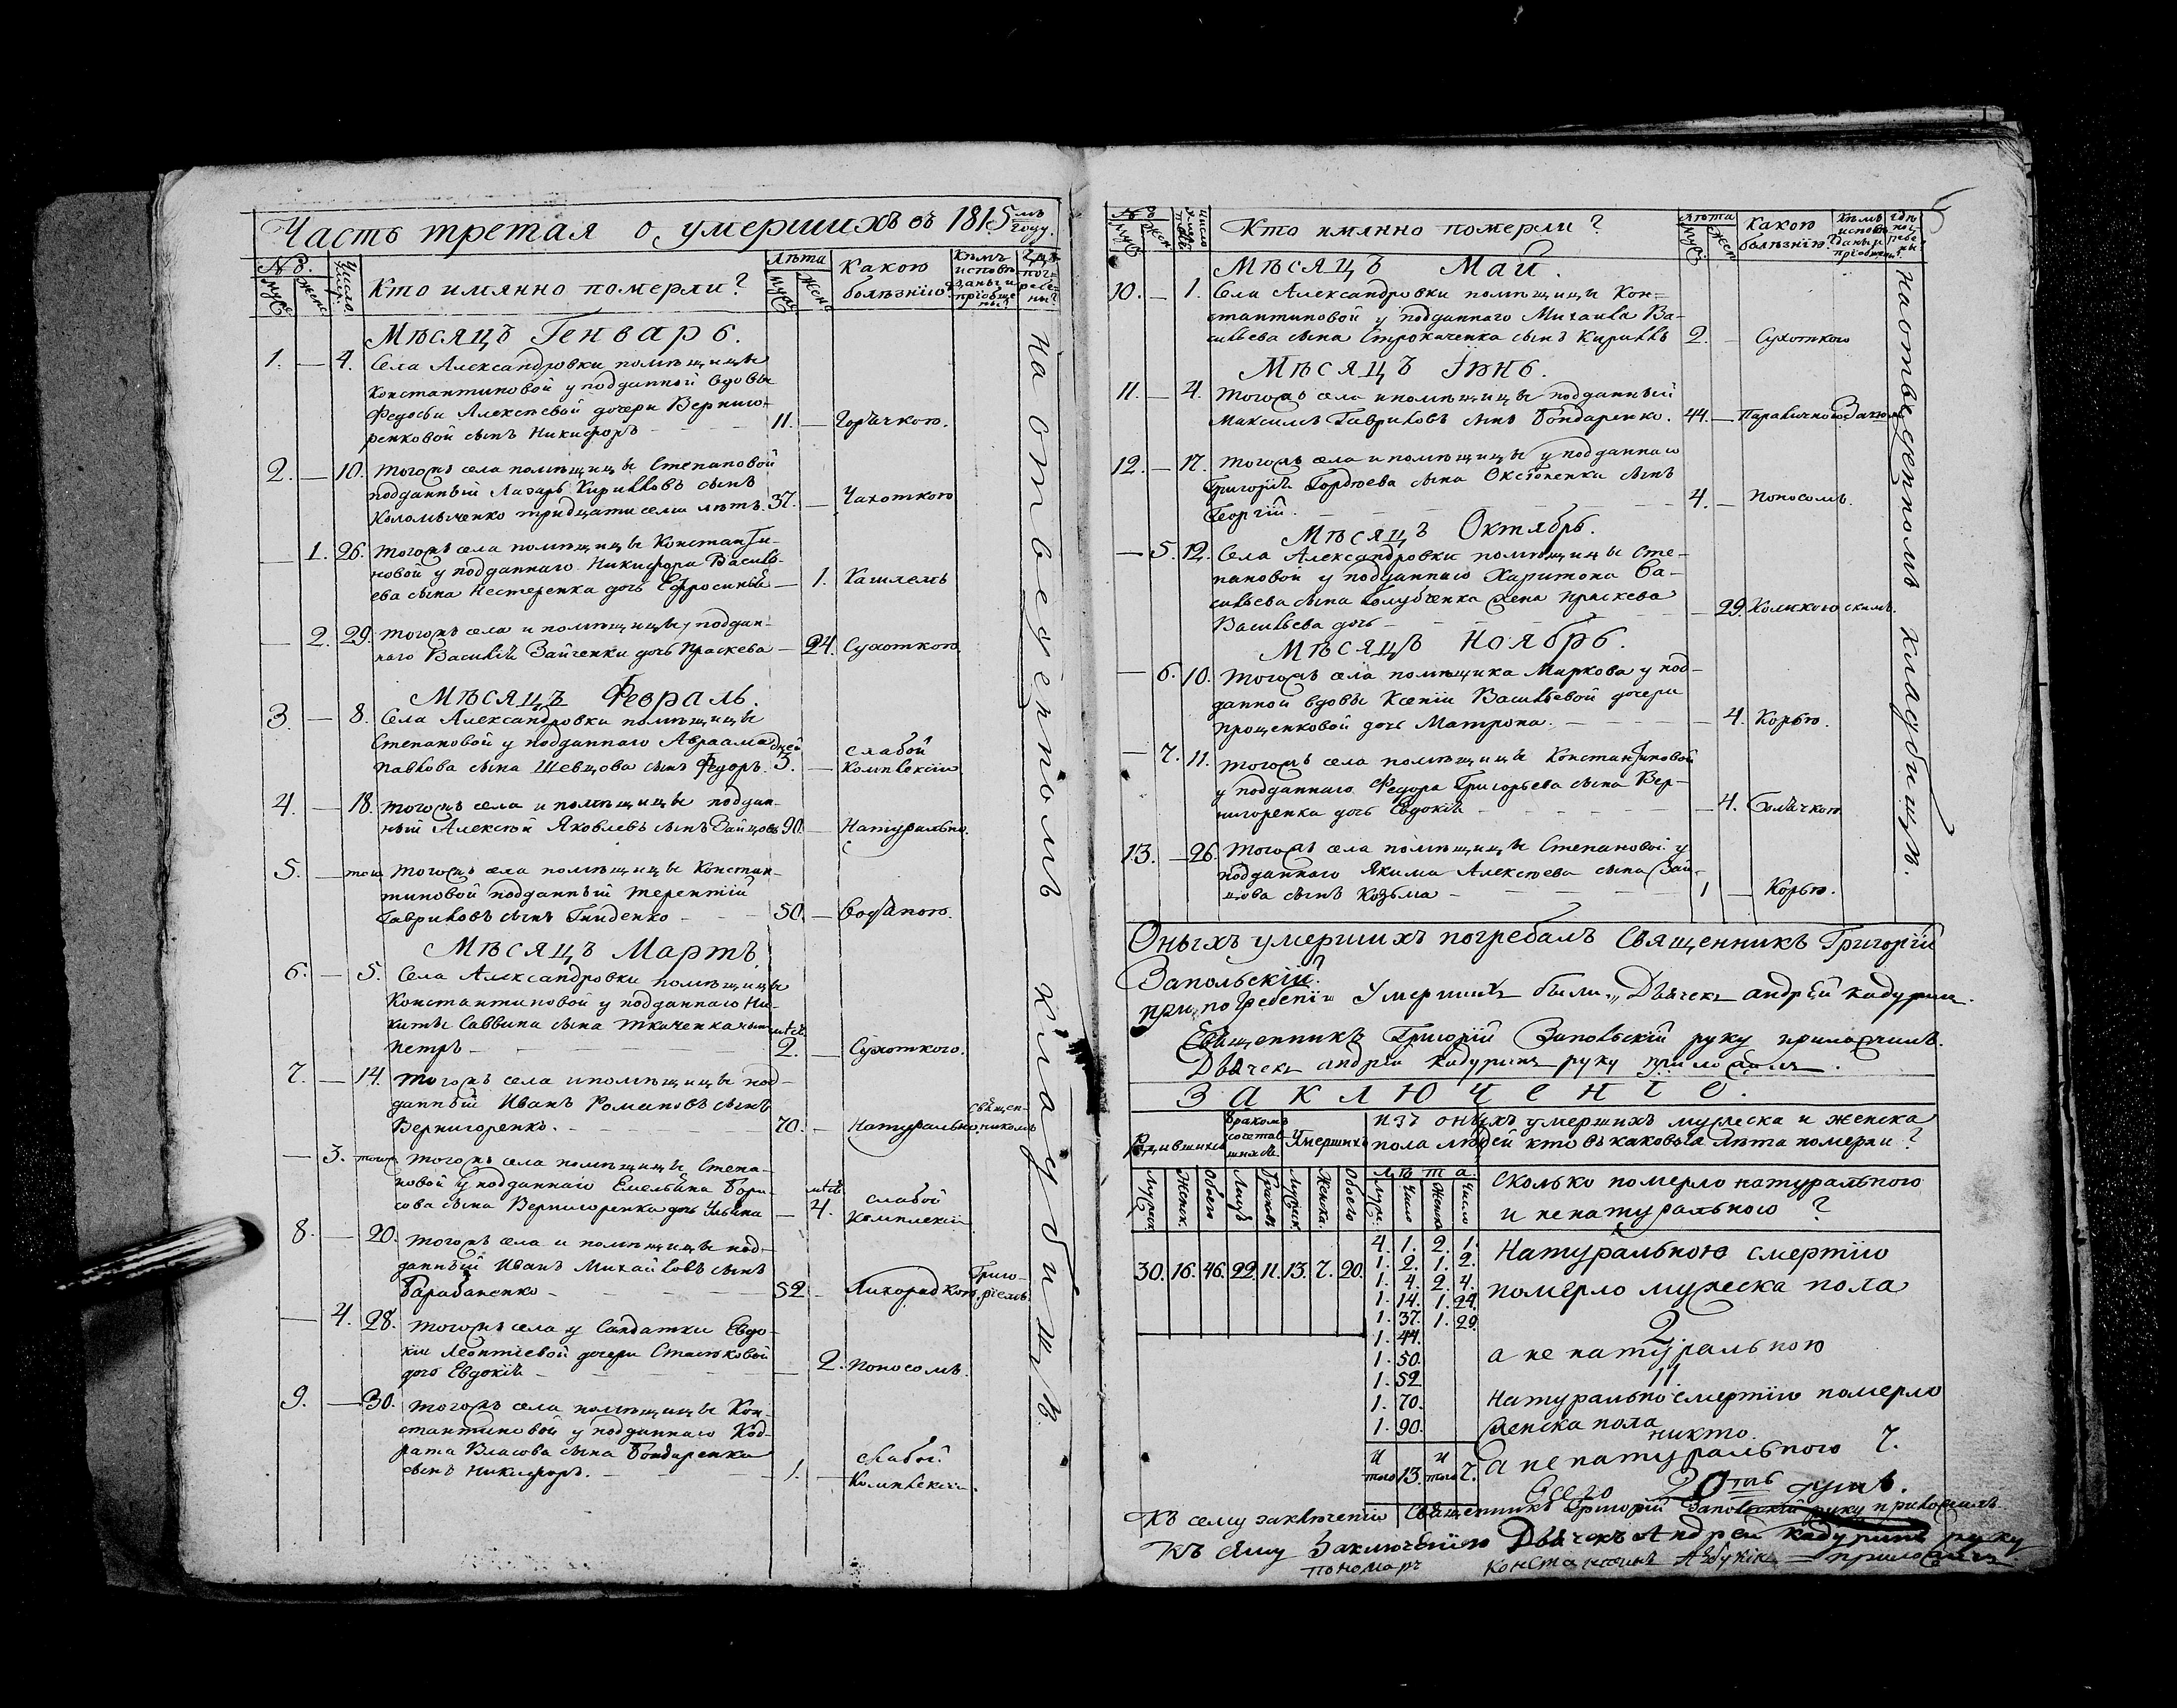 Часть третая о умершихъ въ 1815мъ году.
№. Число умер. Кто имянно померли? лѣта Какою болѣзнію Кѣмъ исповѣданы и пріобщены? Гдѣ погребены?
Муск Женс Муск Женс
Мѣсяцъ Генварь.
1. — 4. Села Александровки помѣщицы
Константиновой у подданной вдовы
Федосьи Алексѣевой дочери Верниго-
ренковой сынъ Никифоръ 11. — Горячкою.
2. — 10. Тогожъ села помѣщицы Степановой
подданный Лазарь Кирилловъ сынъ
Коломыченко тридцати семи лѣтъ. 37. — Чахоткою
— 1. 26. Тогожъ села помѣщицы Константи-
новой у подданнаго Никифора Василь-
ева сына Нестеренка дочь Ефросинія — 1. Кашлемъ
— 2. 29. Тогожъ села и помѣщицы, поддан-
наго Василія Зайченки дочь Праскева — 24. Сухоткою
Мѣсяцъ Февраль.
3. — 8. Села Александровки помѣщицы
Степановой у подданнаго Авраама дней
Павлова сына Шевцова сынъ Федоръ. 3. — слабой Комплекціи
4. — 18. Тогожъ села и помѣщицы поддан-
ный Алексѣй Яковлевъ сынъ Зайцовъ 90. — Натурально.
5. — тогож Тогожъ села помѣщицы Констан-
тиновой подданный Терентій
Гавриловъ сынъ Гниденко 50. — Водяною.
Мѣсяцъ Мартъ.
6. — 5. Села Александровки помѣщицы
Константиновой у подданнаго Ни-
киты Саввина сына Ткаченка сынъ мѣся.
Петръ 2. — Сухоткого.
7. — 14. Тогожъ села и помѣщицы под-
данный Иванъ Романовъ сынъ
Вернигоренко. 70. — Натурально. священ-никомъ
— 3. тогож Тогожъ села помѣщицы Степа-
новой у подданнаго Емельяна Бори-
сова сына Вернигоренка дочь Ульяна — мѣся 4. слабой Комплекціи
8. — 20. Тогожъ села и помѣщицы под-
данный Иванъ Михайловъ сынъ
Барабаненко 52 — Лихорадкою. Григо-ріемъ.
— 4. 28. Тогожъ села у Салдатки Евдо-
кіи Леонтіевой дочери
дочь Евдокія — 2. Поносомъ.
9. — 30. Тогожъ села помѣщицы Кон-
стантиновой у подданнаго Код-
рата Власова сына Бондаренка
сынъ Никифоръ. 1. — слабой Комплекціи.
На отведенномъ кладбищѣ
6
№ Муск Жен Число Кто имянно померли? лѣта Муск Жен Какою болѣзнію. Кѣмъ исповѣданы и пріобщены? Гдѣ погребены?
Мѣсяцъ Май.
10. — 1. Села Александровки помѣщицы Кон=
стантиновой у подданнаго Михаила Ва-
сильева сына Строкаченка сынъ Кириллъ 2. — Сухоткого
Мѣсяцъ Іюнь.
11. — 4. Тогожъ села и помѣщицы подданный
Максимъ Гавриловъ сынъ Бондаренко. 44. — Параличною
12. — 17. Тогожъ села и помѣщицы у подданнаго
Григорія Гордѣева сына сынъ
Георгій. 4. — Поносомъ.
Мѣсяцъ Октябрь.
— 5. 12. Села Александровки помѣщицы Сте-
пановой у подданнаго Харитона Ва-
сильева сына Голубченка жена Праскева
Васильева дочь — 29.
Мѣсяцъ Ноябрь.
— 6. 10. Тогожъ села помѣщика Маркова у под-
данной вдовы Ксеніи Васильевой дочери
Проценковой дочь Матрона. — 4. Корью.
— 7. 11. Тогожъ села помѣщицы Константиновой
у подданнаго Федора Григорьева сына Вер-
нигоренка дочь Евдокія — 4. Болячкою
13. — 26. Тогожъ села помѣщицы Степановой у
подданнаго Якима Алексѣева сына Зай-
цова сынъ Козьма 1 — Корью.
На отведенномъ кладбищѣ.
Оныхъ умершихъ погребалъ Священникъ Григорій
Запольскій.
при погребеніи Умершихъ были Дьячекъ андрей кадурин.
Священникъ Григорій Запольскій руку приложилъ.
Дьячекъ андрей кадуринъ руку приложилъ.
ЗАКЛЮЧЕНІЕ.
Родившихся Бракомъ сочетавшихся Умершихъ изъ оныхъ умершихъ мужеска и женска
пола людей кто въ каковыя лѣта померли?
Мужеск. Женск. Обоего Лицъ Браковъ Мужск. Женска. Обоего Лѣта. Муже. Число Женск Число
Сколько померло натурального
и ненатурального?
30. 16. 46. 22. 11. 13. 7. 20.
4. 1. 2. 1.
1. 2. 1. 2.
1. 4. 2. 4.
1. 14. 1. 24.
1. 37. 1. 29.
1. 44.
1. 50.
1. 52
1. 70.
1. 90.
И того 13. И того 7.
Натуральною смертію
померло мужеска пола
2
а ненатуральною
11.
Натурально смертію померло
женска пола никто.
а ненатурального 7.
Всего 20ть душъ.
Къ сему заключенію Священникъ Григорій Запольскій руку приложилъ.
Къ сему Заключенію Дьячекъ Андрей кадуринъ руку приложилъ
пономарь Константинъ